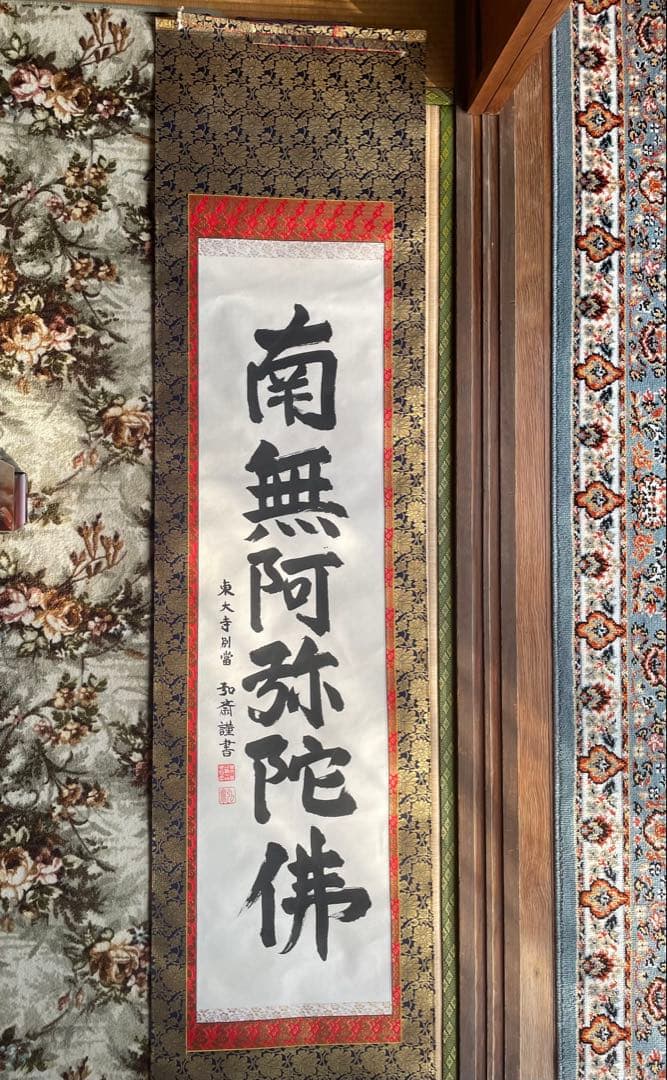 南無阿弥陀佛
東大寺別當 弘斎謹書